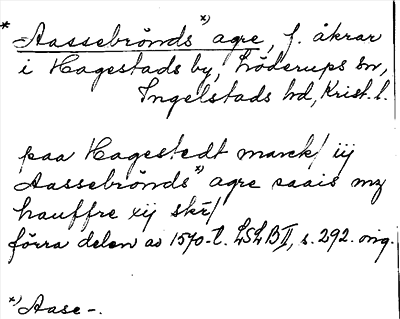 * Aassebrönds *) agre, f. åkrar
i Hagestads by, Löderups sn,
Ingelstads hd, Krist. l.
paa Hagestedt marck/ iij
Aassebrönds *) agre saais mz
hauffre xij skr̄/
förra delen av 1570-t. LSLB II, s. 292. orig.
*) Aase-.